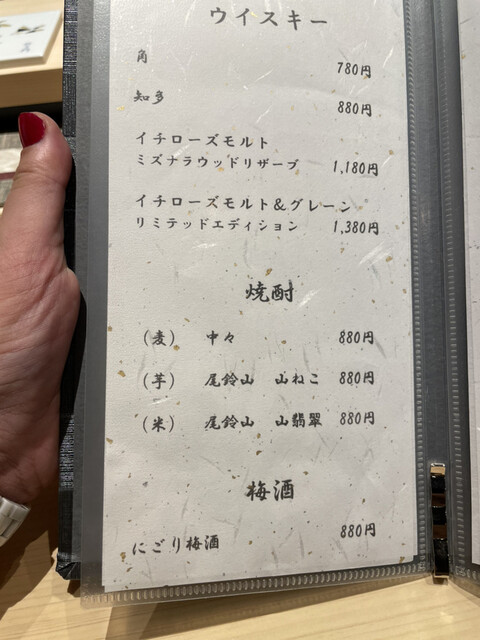 ウイスキー
角 780円
知多 880円
イチローズモルト
ミズナラウッドリザーブ 1,180円
イチローズモルト&グレーン
リミテッドエディション 1,380円
焼酎
(麦) 中々 880円
(芋) 尾鈴山 山ねこ 880円
(米) 尾鈴山 山翡翠 880円
梅酒
にごり梅酒 880円